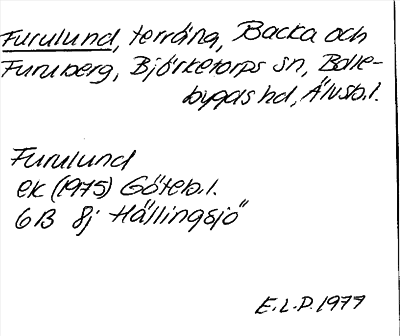 Furulund, terräng, Backa och
Furuberg, Björketorps sn, Bolle-
bygds hd, Älvsb.l.
Furulund
ek (1975) Göteb.l.
6B 8j Hällingsjö
E.L.P. 1977